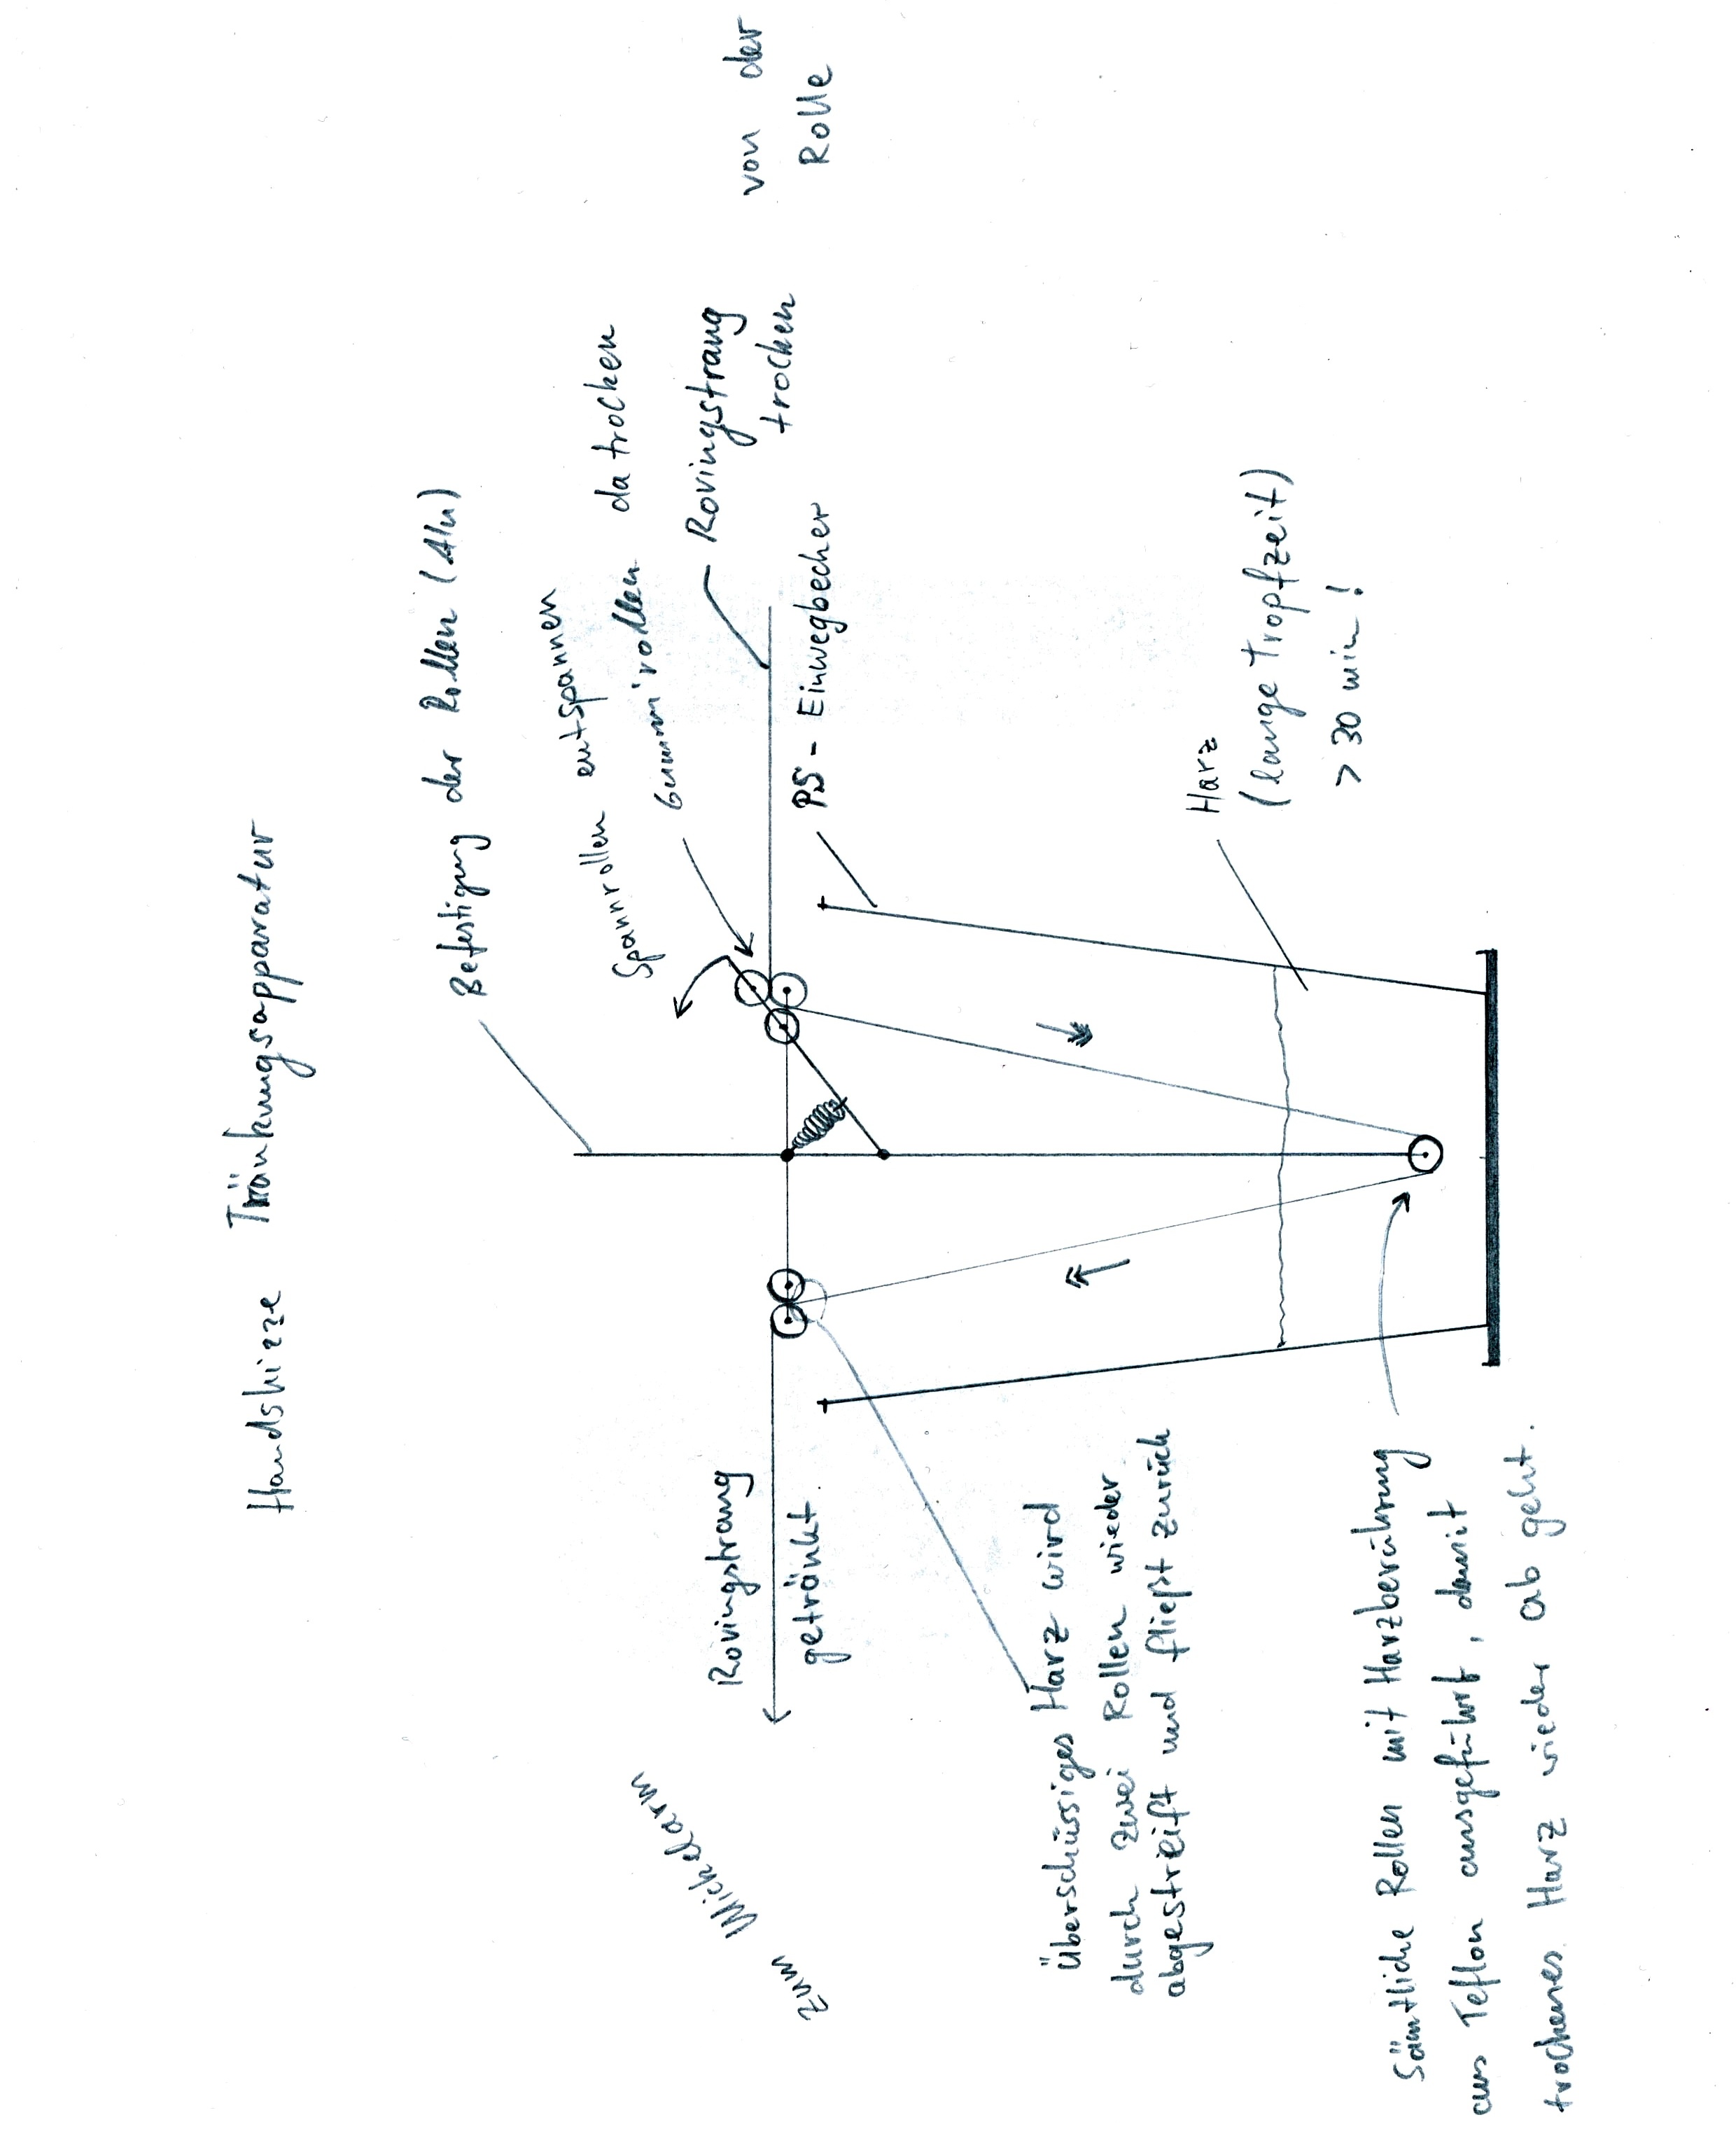 Handskizze Tränkungsapparatur
Befestigung der Rollen (Alu)
Spannrollen entspannen
Gummirollen da trocken
Rovingstrang
trocken
von der
Rolle
PS - Einwegbecher
Harz
(lange Tropfzeit)
> 30 min !
Rovingstrang
getränkt
zum Wickelarm
Überschüssiges Harz wird
durch zwei Rollen wieder
abgestreift und fließt zurück
Sämtliche Rollen mit Harzberührung
aus Teflon ausgeführt, damit
trockenes Harz wieder ab geht.